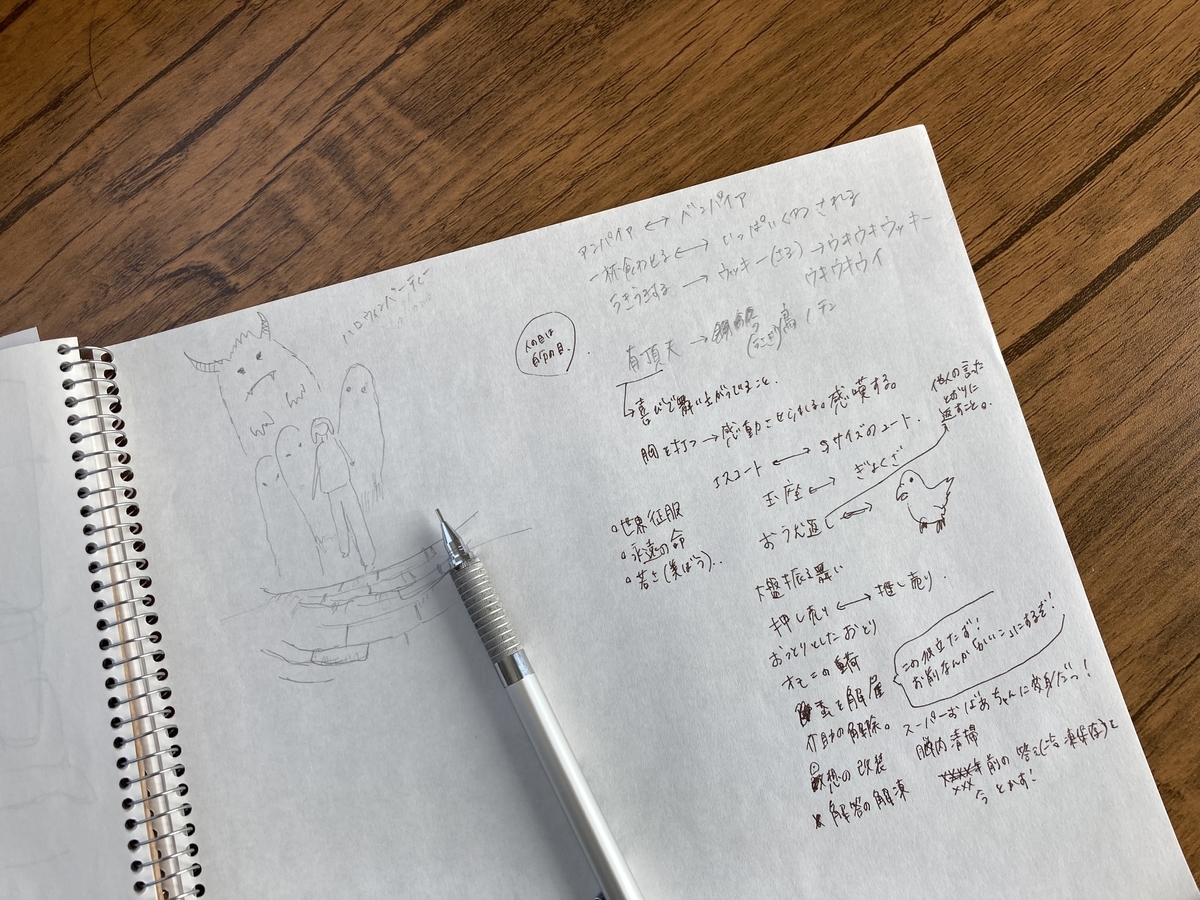 ハロウィンパーティー
人の目は
自分の目。
アンパイア ↔ ベンパイア
一杯食わせる ↔ いっぱいくわされる
うきうきする → ウッキー(さる) → ウキウキウッキー
ウキウキウイ
有頂天 → 鳥 / テン
→ 喜びで舞い上がっていること。
胸を打つ → 感動させられる。感嘆する。
他人の言った
とおりに
返すこと。
エスコート ↔ Sサイズのコート。
玉座 ↔ ぎょくざ
おうむ返 ↔
・世界征服
・永遠の命
・若さ(美ぼう)..
大盤振る舞い
押し売り ↔ 推し売り.
おっとりとしたおとり
オモニの重荷
蛮を解雇
この役立たず!
お前なんが「かいこ」にするぞ!
介助の解除。
スーパーおばあちゃんに変身だっ!
想の改装
脳内清掃
解答の解凍
年前の答え(を凍保存)を
今とかす!